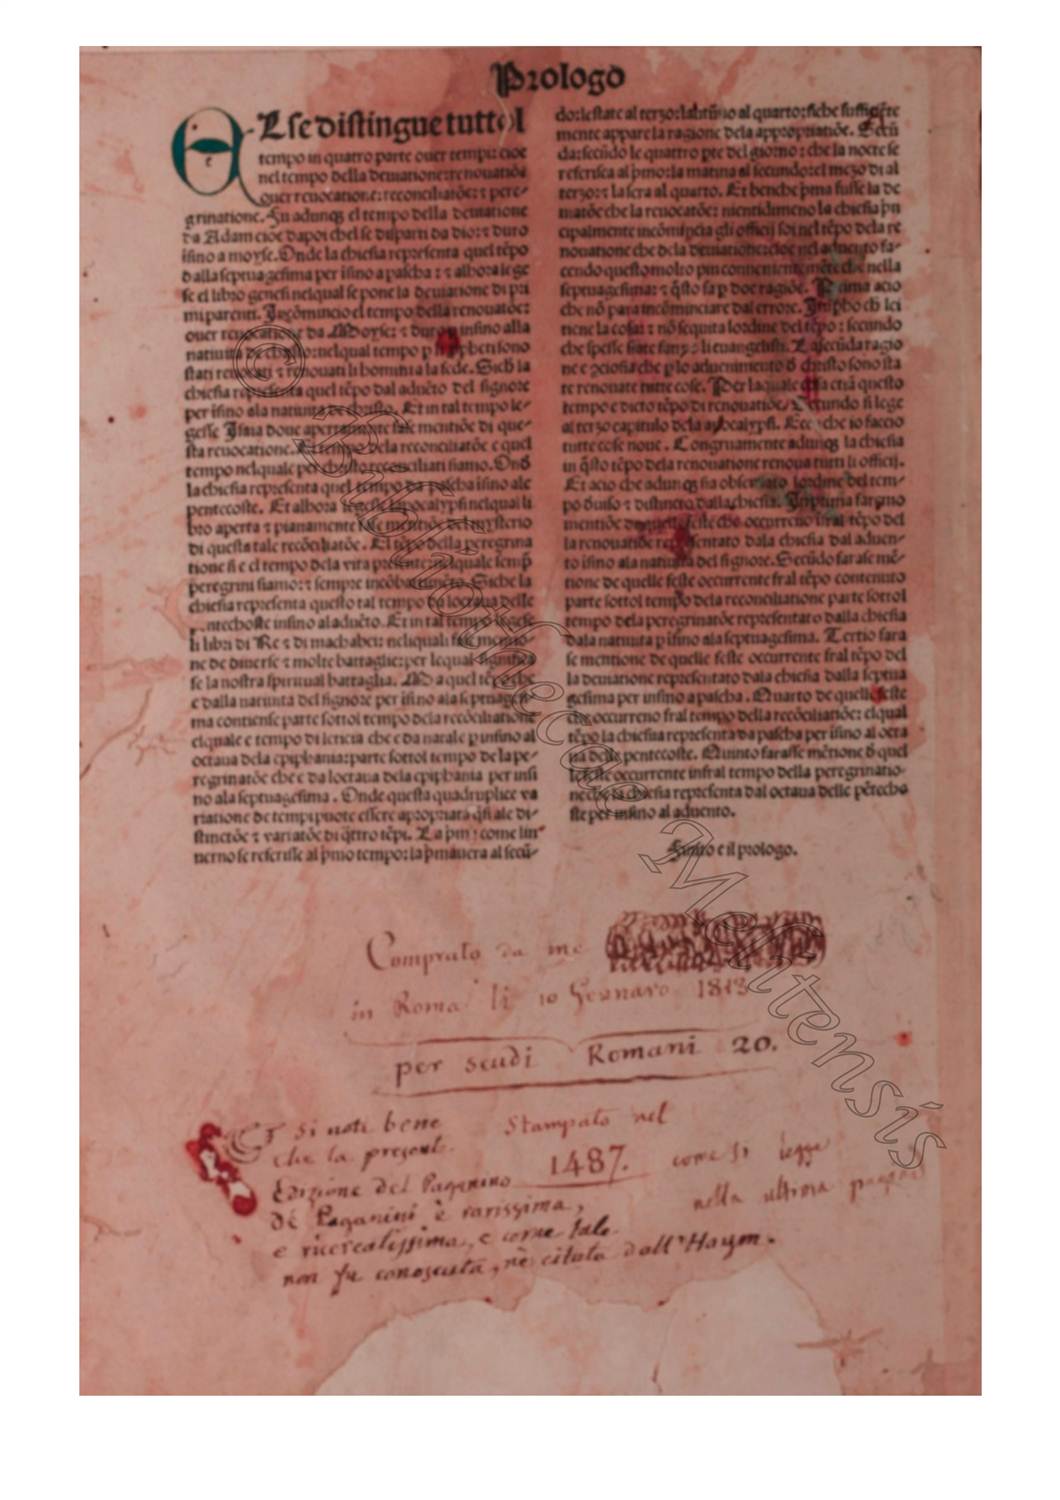 Prologo
El se distingue tutto l
tempo in quatro parte ouer tempi: cioe
nel tempo della deuiatione: renouatiōe
ouer reuocatione: reconciliatōe: ⁊ pere-
grinatione. Fu adunqꝫ el tempo della deuiatione
da Adam cioe dapoi chel se disparti da dio: ⁊ duro
īfino a moyse. Onde la chiesia representa quel tēpo
dalla septuagesima per īfino a pascha: ⁊ albora lege
se el libro genesi nelqual se pone la deuiatione di pri
mi parenti. Incōmincio el tempo della renouatōe:
ouer reuocatione da Moyse: ⁊ duro insino alla
natiuita de christo: nelqual tempo p li ꝓpheti sono
stati reuocati ⁊ renouati li homini a la fede. Sich la
chiesia representa quel tēpo dal aduēto del signore
per īfino ala natiuita de christo. Et in tal tempo le-
gesse Isaia doue apertamente fa se mentiōe di que-
sta reuocatione. El tempo dela reconciliatōe e quel
tempo nelquale per christo reconciliati siamo. Onde
la chiesia representa quel tempo da pascha īfino ale
pentecoste. Et albora legesse lapocalypsi nelqual li
bro aperta ⁊ pianamente fa se mentiōe del mysterio
di questa tale recōciliatōe. El tēpo della peregrina
tione si e el tempo dela vita presente nelquale semp
peregrini siamo: ⁊ sempre in cōbattimēto. Siche la
chiesia representa questo tal tempo da loctaua delle
pentechoste insino al aduēto. Et in tal tempo legese
li libri di Re ⁊ di machabei: neliquali fasse mentio-
ne de diuerse ⁊ molte battaglie: per lequal significa
se la nostra spiritual battaglia. Ma quel tēpo che
e dalla natiuita del signore per īfino ala septuagesi-
ma contiense parte sottol tempo dela recōciliatione
elquale e tempo di leticia che e da natale p insino al
octaua dela epiphania: parte sottol tempo de la pe-
regrinatōe che e da loctaua dela epiphania per insi
no ala septuagesima. Onde questa quadruplice va
riatione de tempi puote essere apropriata q̄si ale di-
stinctōe ⁊ variatōe di q̄ttro tēpi. La pm: come lin
uerno se referisse al pmo tempo: la pmauera al secū-
do: lestate al terzo: lautūno al quarto: siche sufficiēte
mente appare la ragione dela appropriatiōe. Secū
da: secūdo le quattro pte del giorno: che la nocte se
referisca al pmo: la matina al secundo: el mezo di al
terzo: ⁊ la sera al quarto. Et benche pma fusse la de
uiatōe che la reuocatōe: nientidimeno la chiesia prī
cipalmente incōmincia gli officij soi nel tēpo dela re
nouatione che dela deuiatione: cioe nel aduento fa-
cendo questo molto piu conuenientemēte che nella
septuagesima: ⁊ q̄sto fa p doe ragiōe. Prima acio
che nō para incōminciare dal errore. Impho ch lei
tiene la cosa: ⁊ nō sequita lordine del tēpo: secundo
che spesse fiate fano li euangelisti. La secūda ragio
ne e ꝓciosia che p lo aduenimento d christo sono sta
te renouate tutte cose. Per laquale cosa etiā questo
tempo e dicto tēpo di renouatiōe. Secundo si lege
al terzo capitulo dela apocalypsi. Ecce che io faccio
tutte cose noue. Congruamente adunqꝫ la chiesia
in q̄sto tēpo dela renouatione renoua tutti li officij.
Et acio che adunqꝫ sia obseruato lordine del tem-
po diuiso ⁊ distincto dalla chiesia. In prima faremo
mentiōe de quelle feste che occurreno fral tēpo del
la renouatiōe representato dala chiesia dal aduen-
to īfino ala natiuita del signore. Secūdo farase mē-
tione de quelle feste occurrente fral tēpo contenuto
parte sottol tempo dela reconciliatione parte sottol
tempo dela peregrinatōe representato dalla chiesia
dala natiuita p īfino ala septuagesima. Tertio fara
se mentione de quelle feste occurrente fral tēpo del
la deuiatione representato dala chiesia dalla septua
gesima per insino a pascha. Quarto de quelle feste
che occurreno fral tempo della recōciliatiōe: elqual
tēpo la chiesia representa da pascha per īfino al octa
ua delle pentecoste. Quinto farasse mētione d quel
le feste occurrente infral tempo della peregrinatio-
ne che la chiesia representa dal octaua delle pētecho
ste per insino al aduento.
Finito e il prologo.
Comprato da me
in Roma li 10 Gennaro 1813
per scudi Romani 20.
Et si noti bene
che la present.
Edizione del Paganino
de Paganini è rarissima,
e ricercatissima, e come tale
non fu conosciuta, nè citata dall'Haym.
Stampato nel
1487. come si legge
nella ultima pagina
© Bibliothecae Melitensis